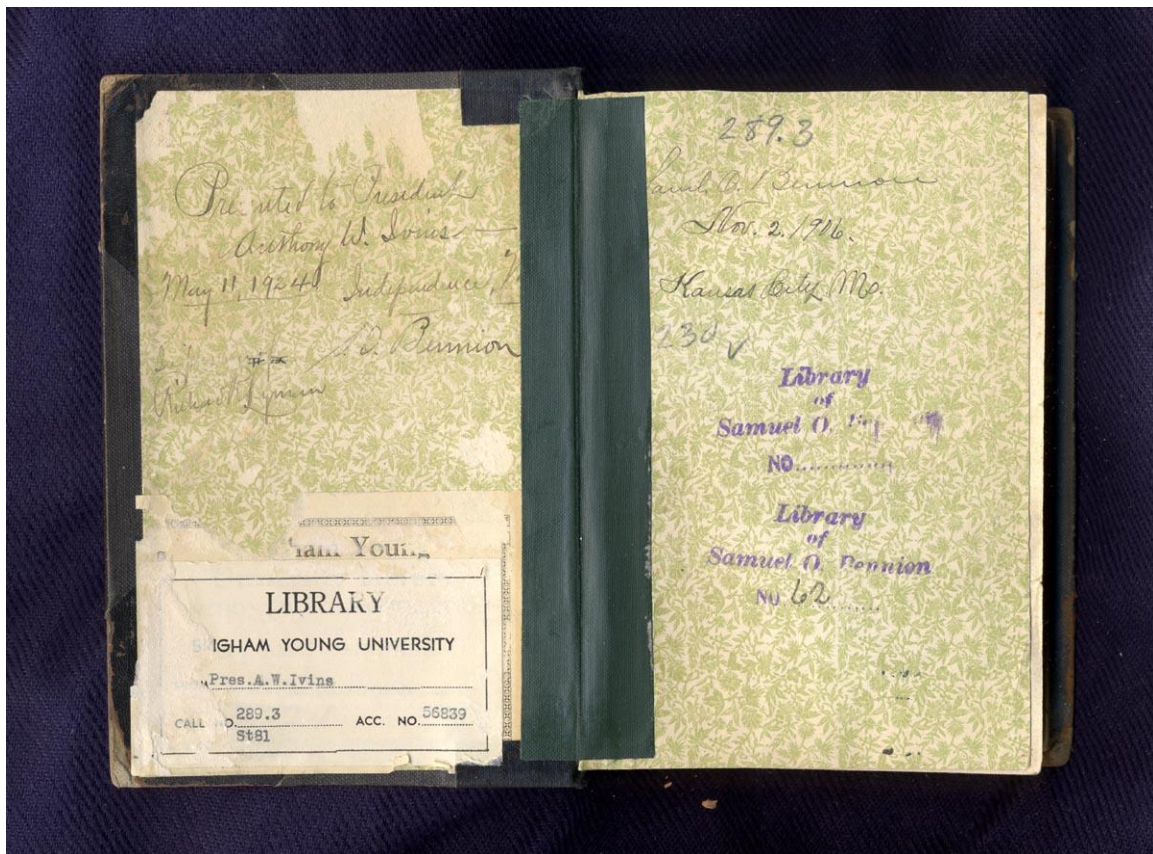 Presented to President
Anthony W. Ivins
May 11, 1924 Independence,
S. O. Bennion
Richard R. Lyman
ham Young
LIBRARY
BRIGHAM YOUNG UNIVERSITY
Pres.A.W.Ivins
CALL NO. 289.3 ACC. NO. 56839
St81
289.3
Saml. O. Bennion
Nov. 2. 1906.
Kansas City Mo.
230 ✓
Library
of
Samuel O.
NO
Library
of
Samuel O. Bennion
NO 62